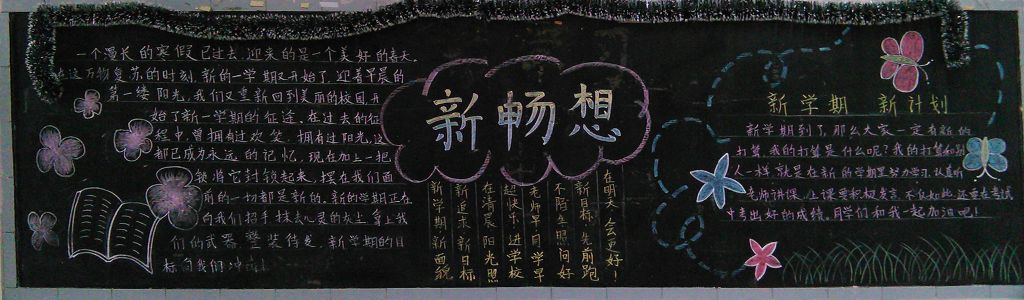 一个漫长的寒假已过去,迎来的是一个美好的春天。
在这万物复苏的时刻,新的一学期又开始了,迎着早晨的
第一缕阳光,我们又重新回到美丽的校园,开
始了新一学期的征途。在过去的征
程中,曾拥有过欢笑,拥有过阳光,这
都已成为永远的记忆,现在加上一把
锁将它封锁起来,摆在我们面
前的一切都是新的,新的学期正在
向我们招手,抹去心灵的灰尘,拿上我
们的武器,整装待发,新学期的目
标向我们冲
新畅想
新学期新面貌
新近求新目标
在清晨阳光照
起快乐进学校
老师早同学早
不陌生照问好
新目标先前跑
在明天会更好!
新学期 新计划
新学期到了,那么大家一定有新的
打算,我的打算是什么呢?我的打算和别
人一样,就是在新的学期里努力学习,认真听
老师讲课,上课要积极发言,不仅如此,还要在考试
中考出好的成绩,同学们和我一起加油吧!